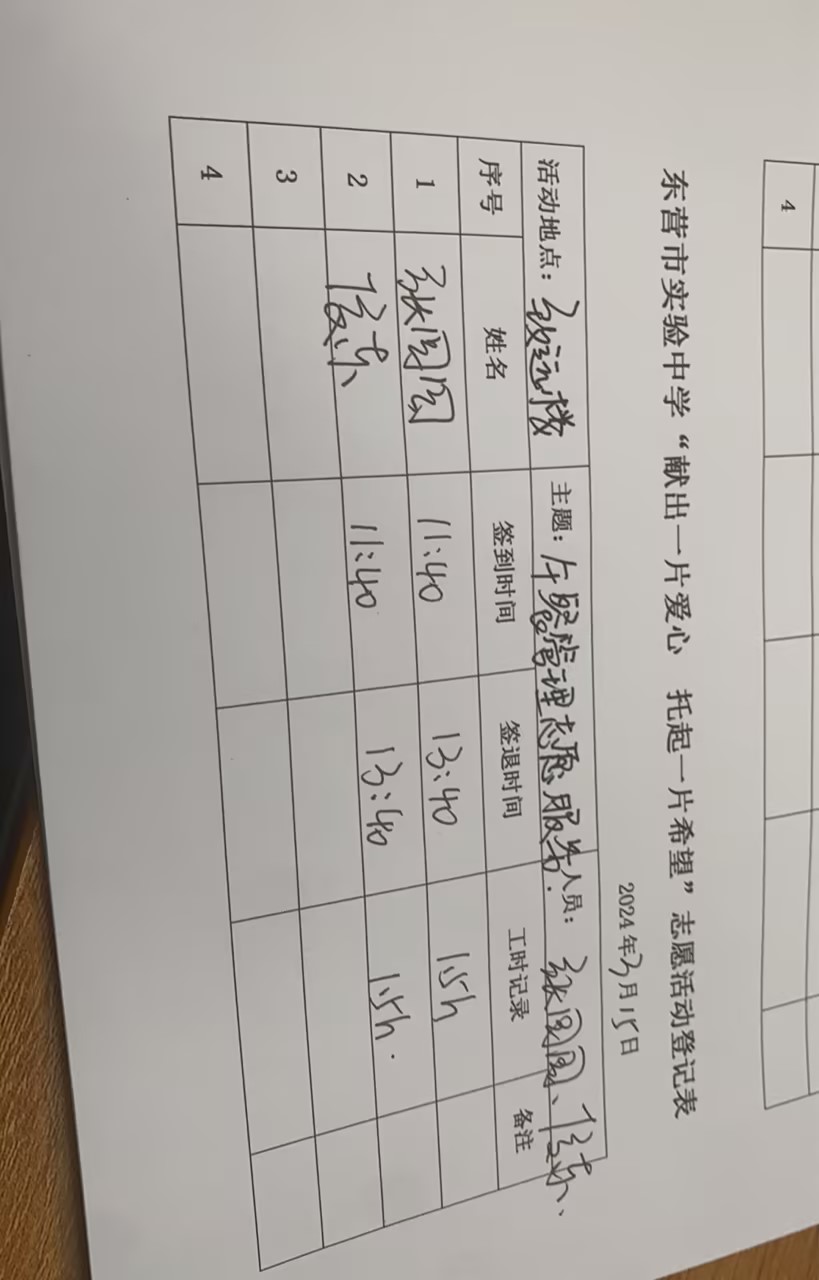 4
东营市实验中学“献出一片爱心 托起一片希望”志愿活动登记表
2024年3月15日
活动地点：致远楼 主题：午餐管理志愿服务. 人员：张园园、徐东、
序号 姓名 签到时间 签退时间 工时记录 备注
1 张园园 11:40 13:40 1.5h
2 11:40 13:40 1.5h.
3
4